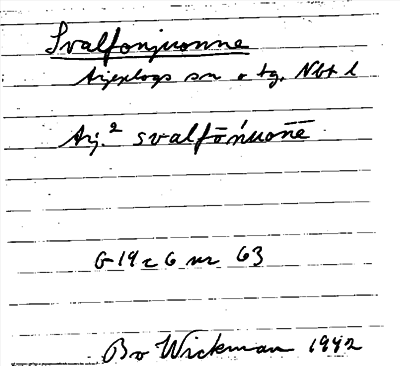 Svalfonjuonne
Arjeplogs sn o tg. Nbt l
Arj.² svalfōńuōn̄ē
G-19 c 6 nr 63
Bo Wickman 1942